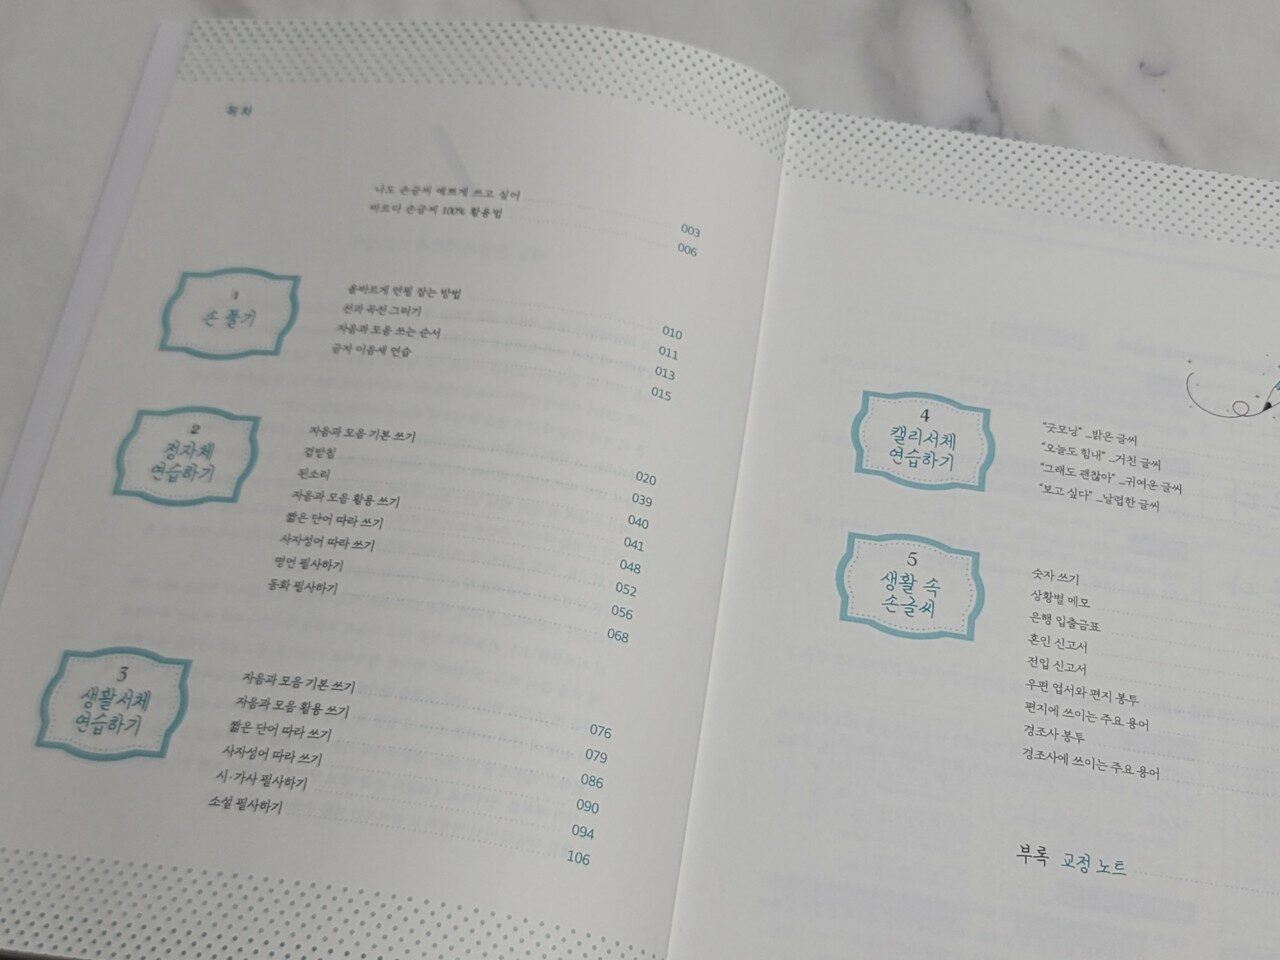 목차
나도 손글씨 예쁘게 쓰고 싶어 003
바르다 손글씨 100% 활용법 006
1
손 풀기
올바르게 연필 잡는 방법 010
선과 곡선 그리기 011
자음과 모음 쓰는 순서 013
글자 이음새 연습 015
2
정자체
연습하기
자음과 모음 기본 쓰기 020
겹받침 039
된소리 040
자음과 모음 활용 쓰기 041
짧은 단어 따라 쓰기 048
사자성어 따라 쓰기 052
명언 필사하기 056
동화 필사하기 068
3
생활서체
연습하기
자음과 모음 기본 쓰기 076
자음과 모음 활용 쓰기 079
짧은 단어 따라 쓰기 086
사자성어 따라 쓰기 090
시·가사 필사하기 094
소설 필사하기 106
4
캘리서체
연습하기
"굿모닝" _밝은 글씨
"오늘도 힘내" _거친 글씨
"그래도 괜찮아" _귀여운 글씨
"보고 싶다" _날렵한 글씨
5
생활 속
손글씨
숫자 쓰기
상황별 메모
은행 입출금표
혼인 신고서
전입 신고서
우편 엽서와 편지 봉투
편지에 쓰이는 주요 용어
경조사 봉투
경조사에 쓰이는 주요 용어
부록 교정 노트